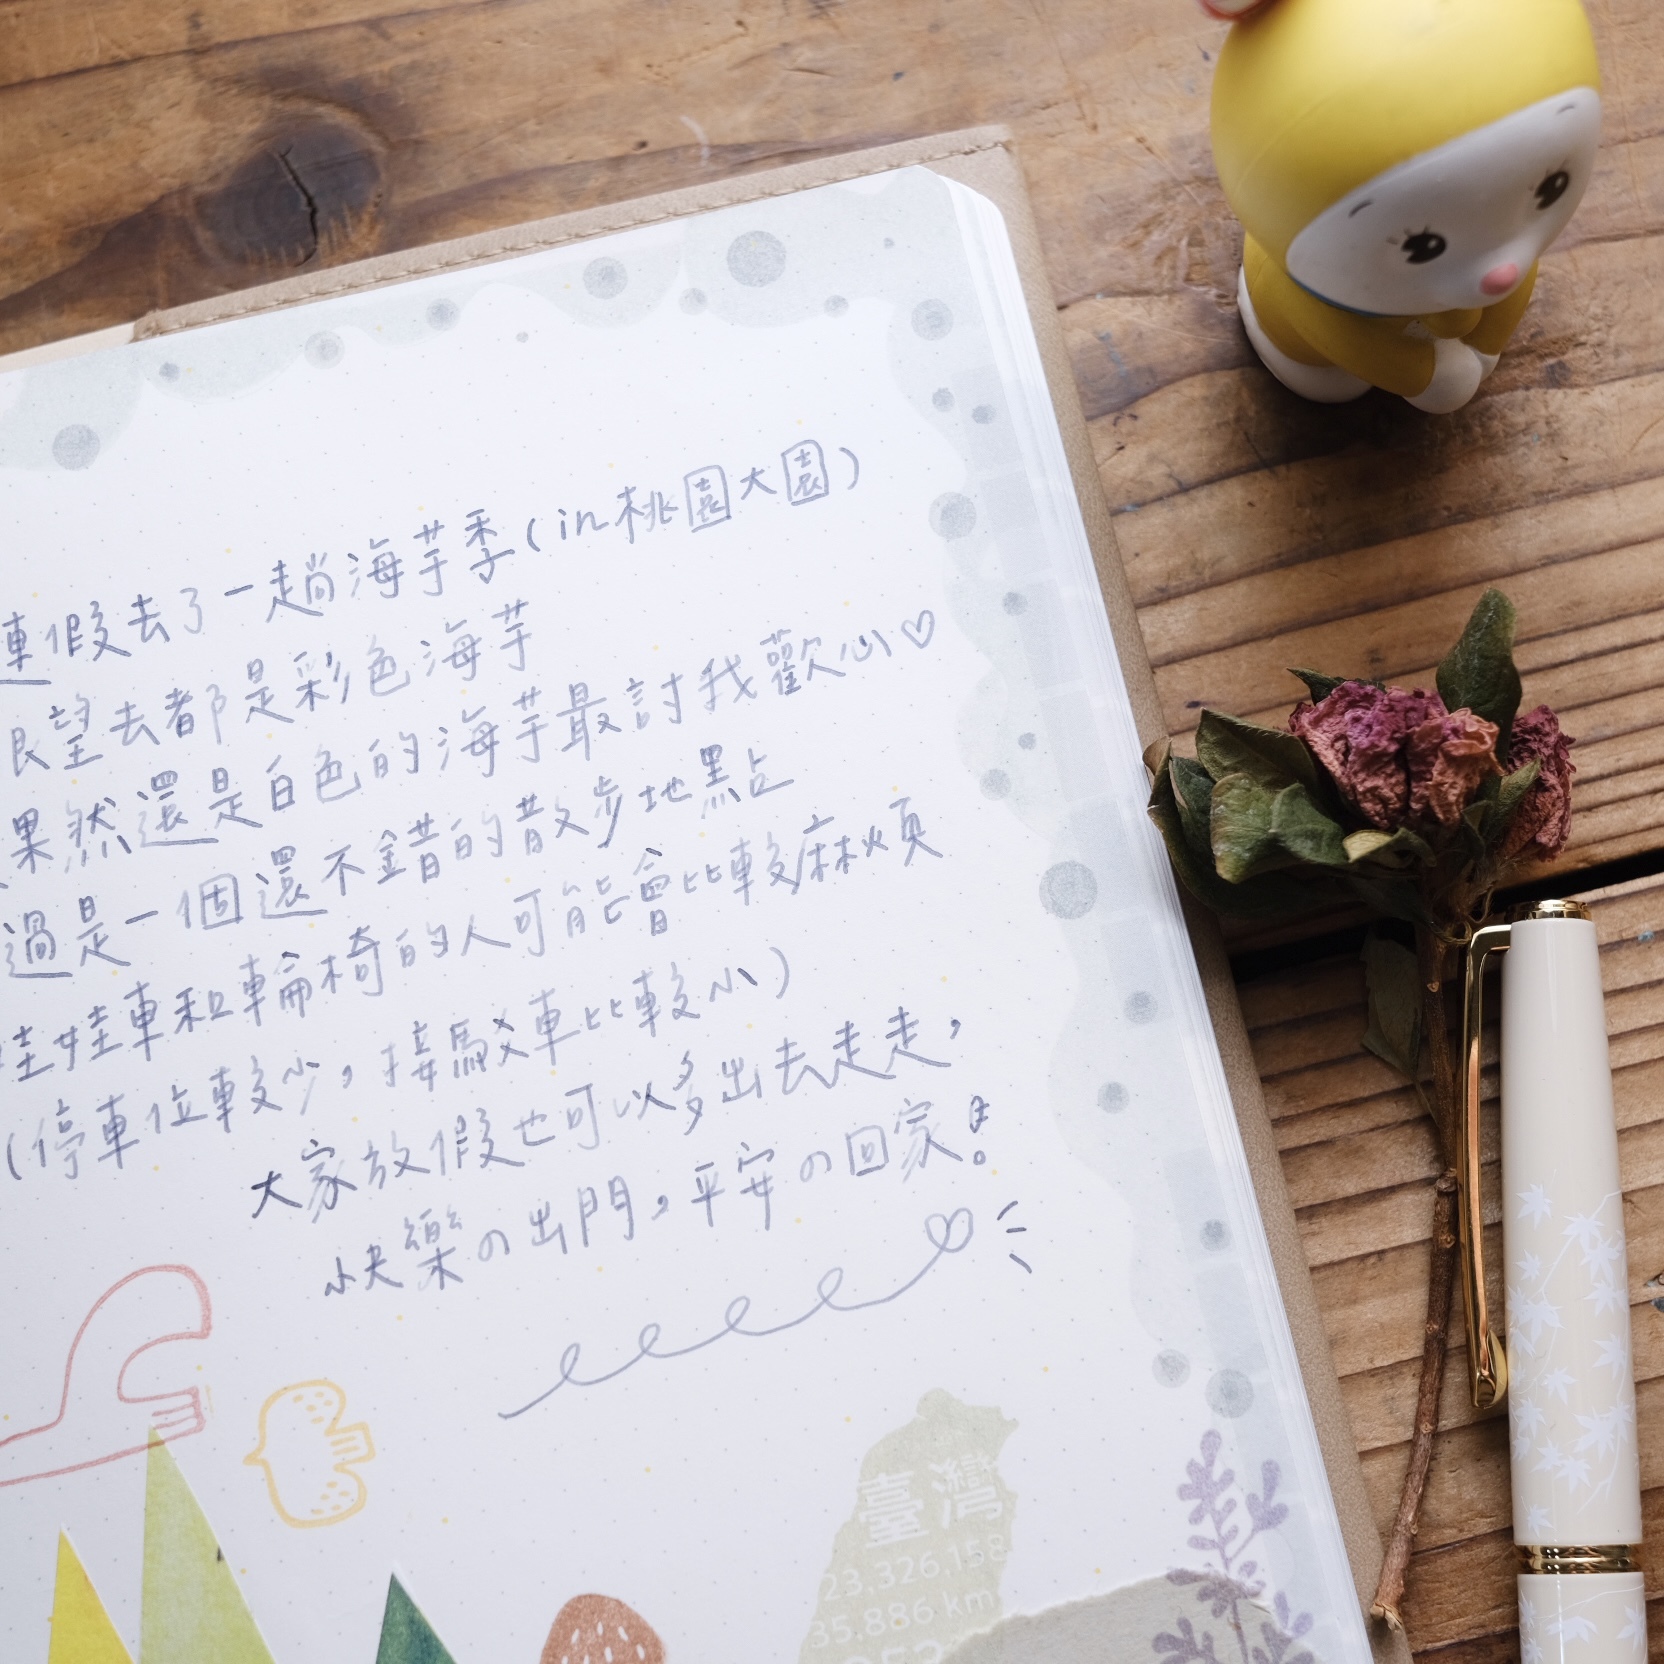 連假去了一趟海芋季(in桃園大園)
眼望去都是彩色海芋
果然還是白色的海芋最討我歡心♡
過是一個還不錯的散步地點
娃娃車和輪椅的人可能會比較麻煩
(停車位較少,接駁車比較小)
大家放假也可以多出去走走,
快樂の出門,平安の回家!
臺灣
23,326,158
35.886 km